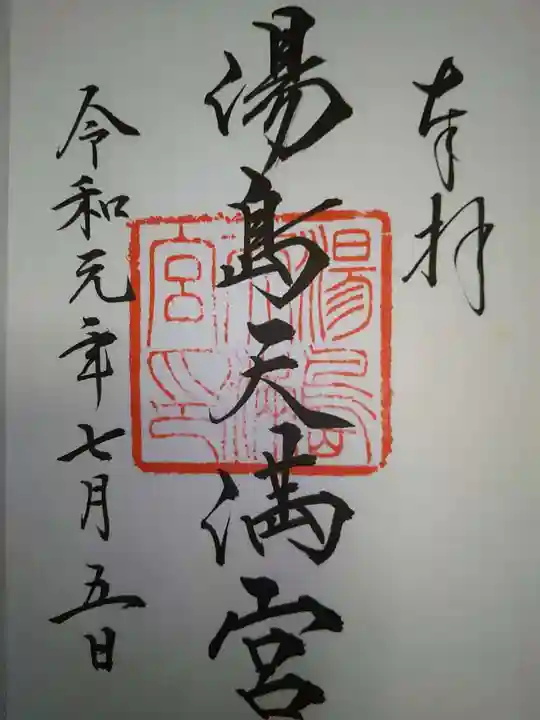 奉拝
湯島天満宮
湯島天満宮印
令和元年七月五日